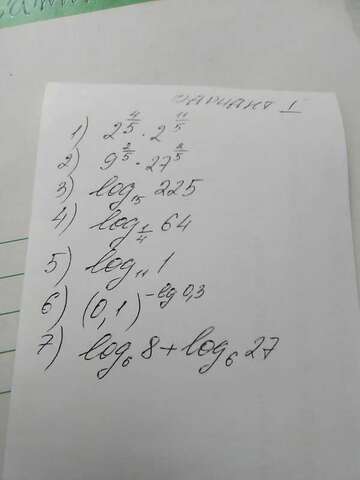 Вариант I
1) 2^{4/5} · 2^{11/5}
2) 9^{2/5} · 27^{2/5}
3) log₁₅ 225
4) log_{1/4} 64
5) log₁₁ 1
6) (0,1)^{-lg 0,3}
7) log₆ 8 + log₆ 27